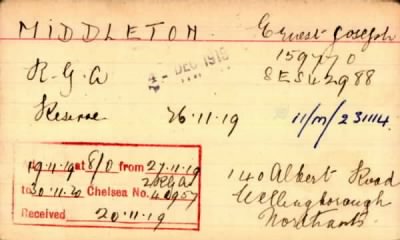 MIDDLETON. Ernest Joseph
4 - DEC 1919
R.G.A
SES42988
Reserve 26.11.19 11/M/231114.
19.11.19 at 8/0 from 27.11.19
to 30.11.20 Chelsea No.
Received 20.11.19
140 Albert Road
Wellingborough
Northants.